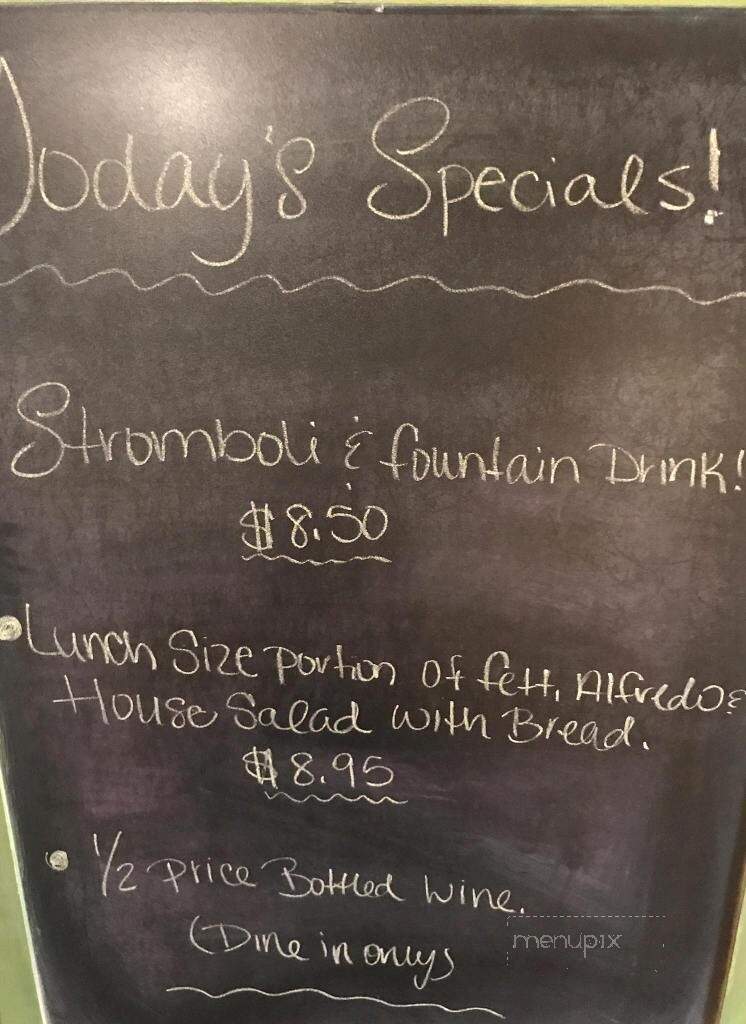 Today's Specials!
Stromboli & fountain Drink!
$8.50
Lunch Size portion of fett. Alfredo &
House Salad with Bread.
$8.95
1/2 price Bottled wine.
(Dine in only)
menupix